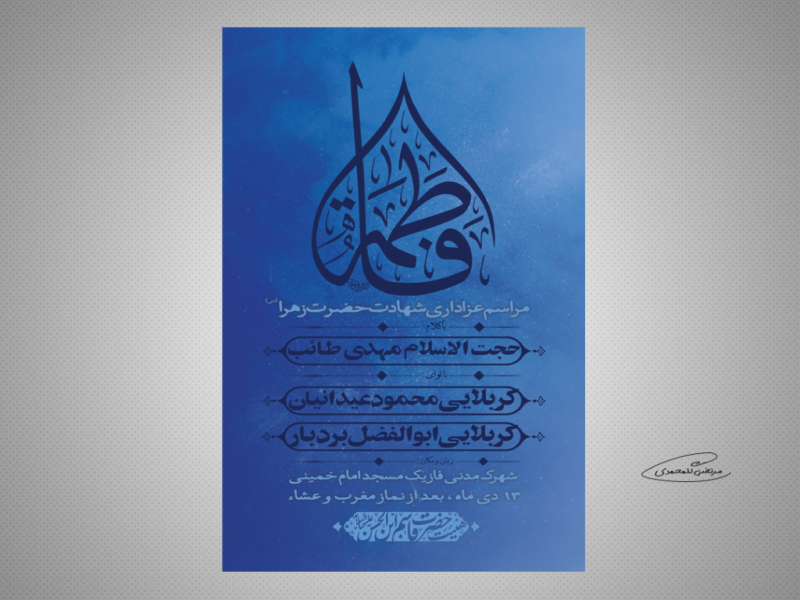 فاطمة
مراسم عزاداری شهادت حضرت زهرا (س)
باکلام
حجت الاسلام مهدی طائب
بانوای
کربلایی محمود عیدانیان
کربلایی ابوالفضل بردبار
زمان و مکان
شهرک مدنی فازیک مسجد امام خمینی
۱۳ دی ماه ، بعد از نماز مغرب و عشاء
هیئت حضرت قاسم ابن الحسن علیه السلام